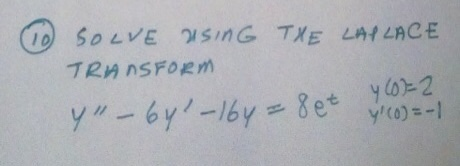 10 SOLVE USING THE LAPLACE
TRANSFORM
y" - 6y' - 16y = 8e^t y(0)=2
y'(0)=-1